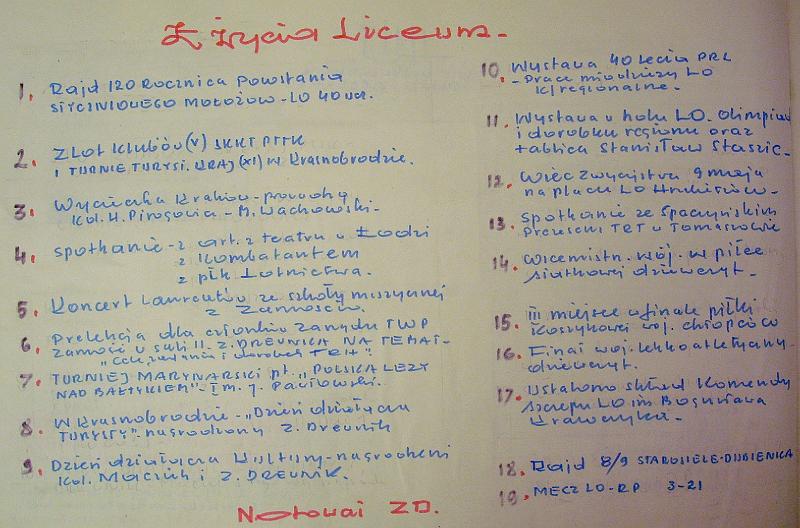 Z życia Liceum-
1. Rajd 120 Rocznica Powstania
STYCZNIOWEGO MOŁOŻÓW-LO 40 ucz.
2. ZLOT KLUBÓW (V) SKKT PTTK
I TURNIEJ TURYST. KRAJ (XI) w Krasnobrodzie.
3. Wycieczka Kraków - prowadzą
Kol. H. Pirogowia - M. Wachowski-
4. Spotkanie - z art. z teatru w Łodzi
z Kombatantem
z płk Lotnictwa.
5. Koncert Laureatów ze szkoły muzycznej
z Zamościa.
6. Prelekcja dla członków Zarządu TWP
Zamość w sali II - Z. DREWNIK NA TEMAT-
"Cele, zadania i dorobek TRH".
7. TURNIEJ MARYNARSKI pt. "POLSKA LEŻY
NAD BAŁTYKIEM" - I m. J. Pawłowski.
8. W Krasnobrodzie - "Dzień działacza
TURYSTY" nagrodzony Z. Drewnik
9. Dzień działacza Kultury - nagrodzeni
Kol. Majciuh i Z. DREWNIK.
10. Wystawa 40 lecia PRL
- Prace młodzieży LO
K/regionalne.-
11. Wystawa w holu LO. Olimpiad
i dorobku regionu oraz
tablica Stanisław Staszic-
12. Wiec zwycięstwa 9 maja
na placu LO Hrubieszów-
13. Spotkanie ze Spaczyńskim
Prezesem TRT w Tomaszowie
14. Wicemistrz. woj. w piłce
siatkowej dziewcząt.-
15. III miejsce w finale piłki
koszykowej woj. chłopców
16. Finał woj. lekkoatletyczny-
dziewcząt.-
17. Ustalono skład Komendy
Szczepu LO im Bogusława
Krawczyka.-
18. Rajd 8/9 STAROSIELE-DUBIENKA
19. MECZ LO-RP 3-21
Notował ZD.